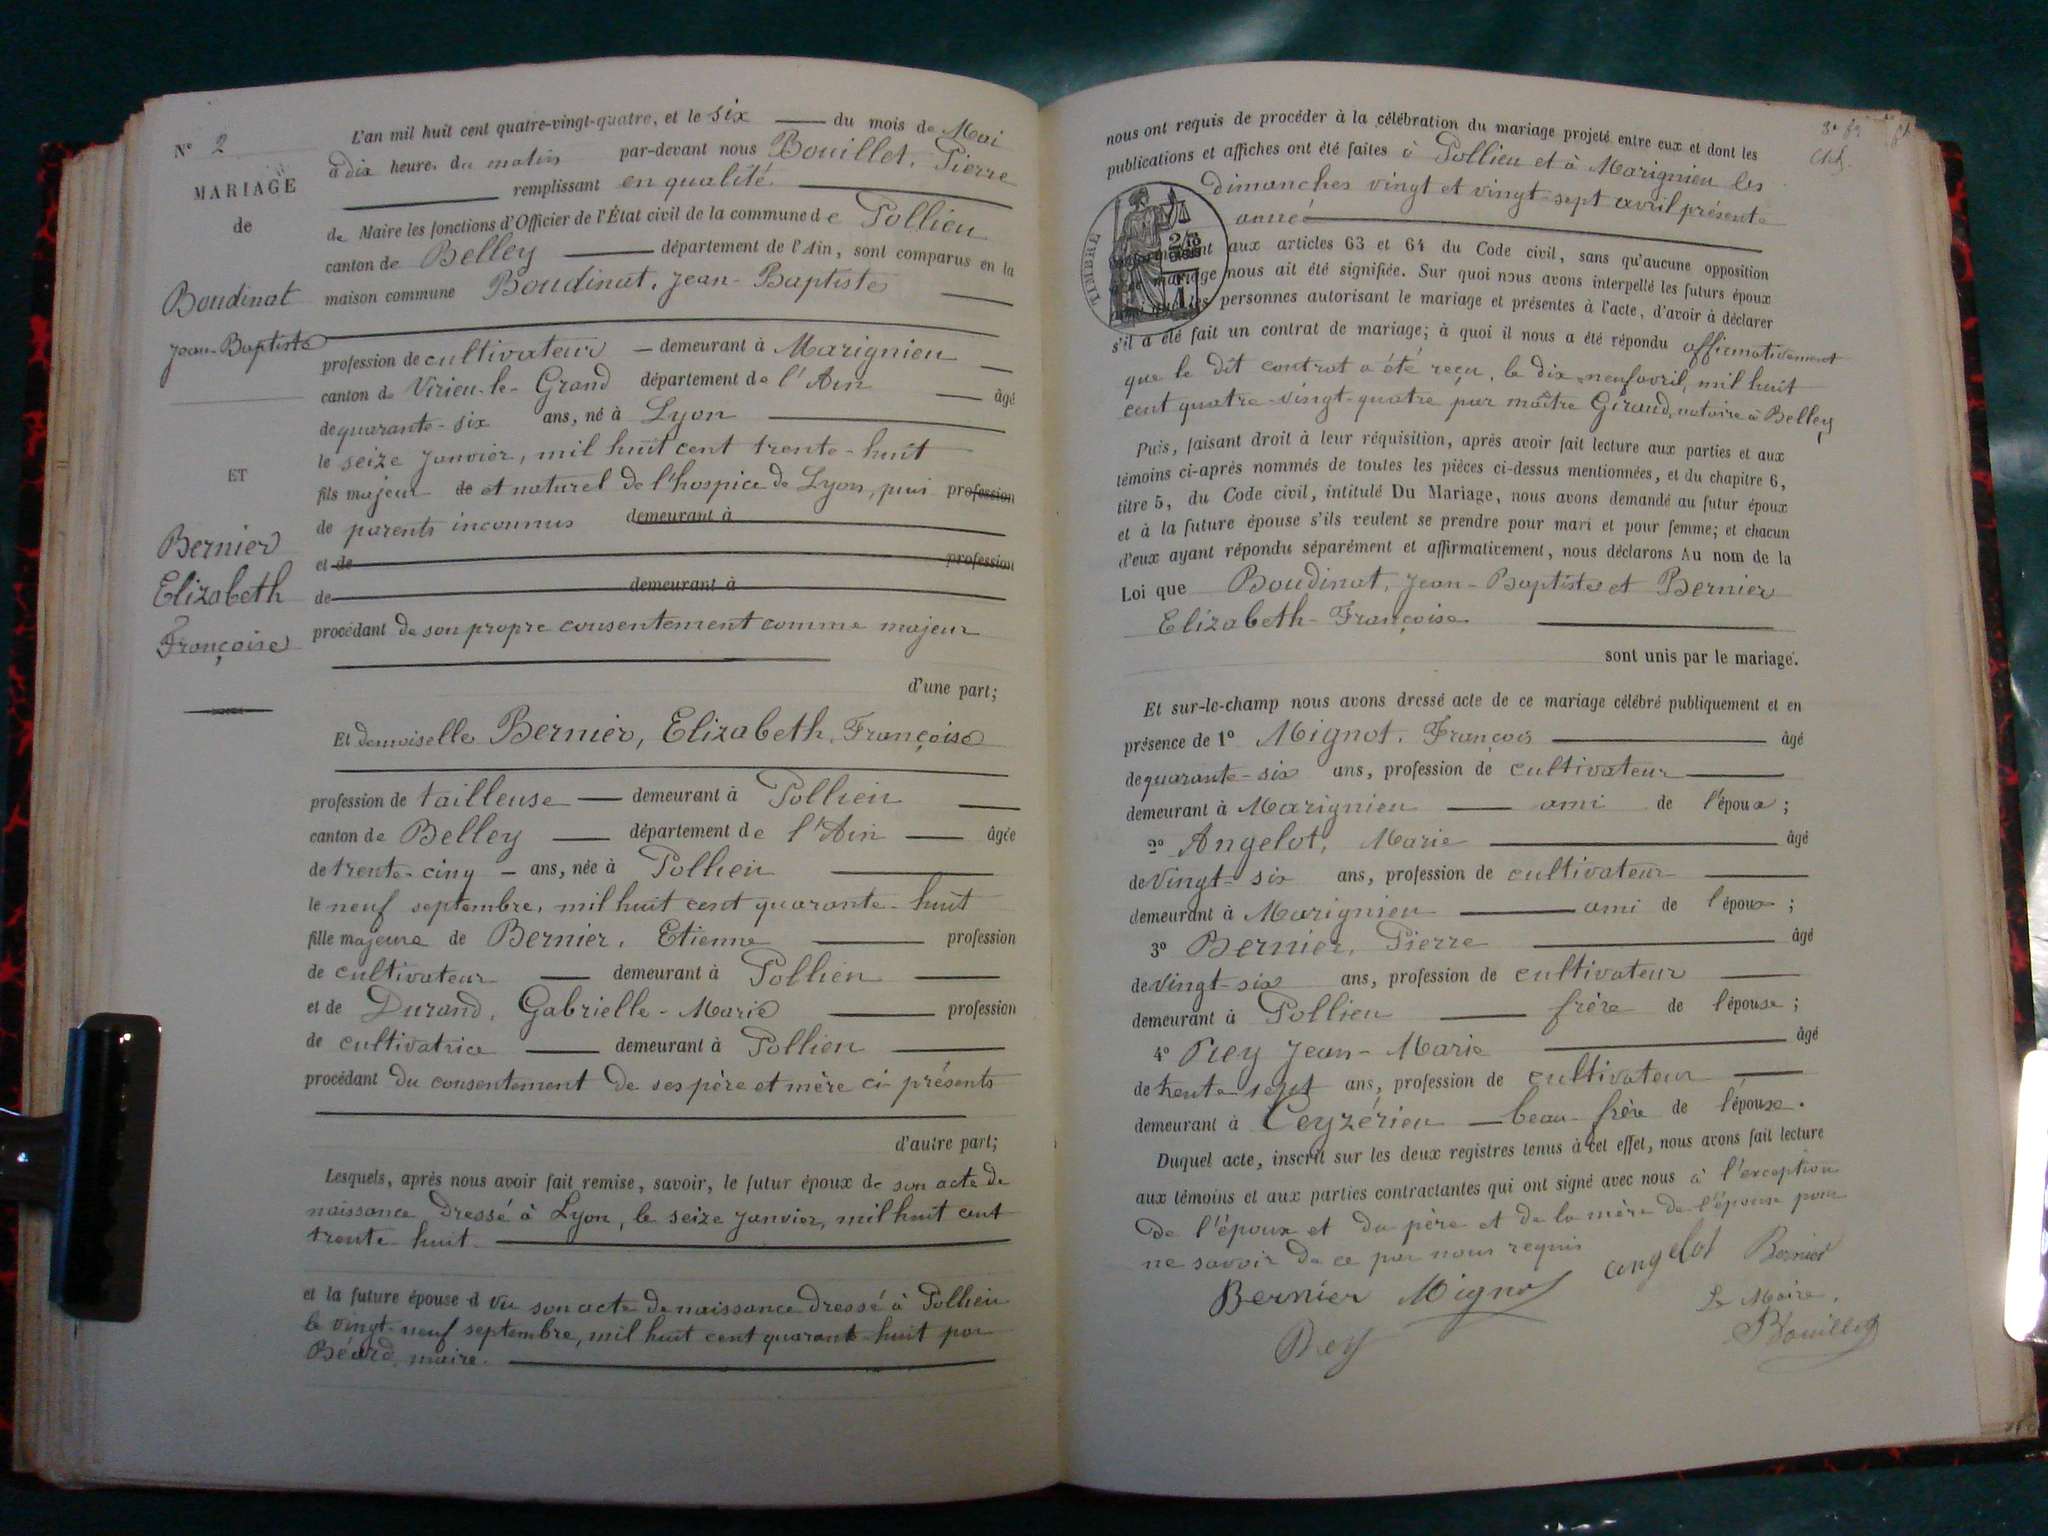 N° 2
MARIAGE
de
Boudinat
Jean-Baptiste
ET
Bernier
Elizabeth
Françoise
L'an mil huit cent quatre-vingt-quatre, et le six du mois de Mai
à dix heures du matin par-devant nous Bouillet, Pierre
remplissant en qualité
de Maire les fonctions d'Officier de l'État civil de la commune de Pollieu
canton de Belley département de l'Ain, sont comparus en la
maison commune Boudinat, Jean-Baptiste
profession de cultivateur demeurant à Marignieu
canton de Virieu-le-Grand département de l'Ain âgé
de quarante-six ans, né à Lyon
le seize janvier, mil huit cent trente-huit
fils majeur de et naturel de l'hospice de Lyon, puis profession
de parents inconnus demeurant à
et de profession
de demeurant à
procédant de son propre consentement comme majeur
d'une part;
Et demoiselle Bernier, Elizabeth, Françoise
profession de tailleuse demeurant à Pollieu
canton de Belley département de l'Ain âgée
de trente-cinq ans, née à Pollieu
le neuf septembre, mil huit cent quarante-huit
fille majeure de Bernier, Etienne profession
de cultivateur demeurant à Pollieu
et de Durand, Gabrielle-Marie profession
de cultivatrice demeurant à Pollieu
procédant du consentement de ses père et mère ci-présents
d'autre part;
Lesquels, après nous avoir fait remise, savoir, le futur époux de son acte de
naissance dressé à Lyon, le seize janvier, mil huit cent
trente-huit
et la future épouse d vu son acte de naissance dressé à Pollieu
le vingt-neuf septembre, mil huit cent quarante-huit par
Béard, maire.
nous ont requis de procéder à la célébration du mariage projeté entre eux et dont les
publications et affiches ont été faites à Pollieu et à Marignieu les
dimanches vingt et vingt-sept avril présente
année
TIMBRE
conformément aux articles 63 et 64 du Code civil, sans qu'aucune opposition
mariage nous ait été signifiée. Sur quoi nous avons interpellé les futurs époux
les personnes autorisant le mariage et présentes à l'acte, d'avoir à déclarer
s'il a été fait un contrat de mariage; à quoi il nous a été répondu affirmativement
que le dit contrat a été reçu, le dix-neuf avril, mil huit
cent quatre-vingt-quatre par maître Giraud, notaire à Belley
Puis, faisant droit à leur réquisition, après avoir fait lecture aux parties et aux
témoins ci-après nommés de toutes les pièces ci-dessus mentionnées, et du chapitre 6,
titre 5, du Code civil, intitulé Du Mariage, nous avons demandé au futur époux
et à la future épouse s'ils veulent se prendre pour mari et pour femme; et chacun
d'eux ayant répondu séparément et affirmativement, nous déclarons Au nom de la
Loi que Boudinat, Jean-Baptiste et Bernier
Elizabeth-Françoise
sont unis par le mariage.
Et sur-le-champ nous avons dressé acte de ce mariage célébré publiquement et en
présence de 1° Mignot, François âgé
de quarante-six ans, profession de cultivateur
demeurant à Marignieu ami de l'époux;
2° Angelot, Marie âgé
de vingt-six ans, profession de cultivateur
demeurant à Marignieu ami de l'époux;
3° Bernier, Pierre âgé
de vingt-six ans, profession de cultivateur
demeurant à Pollieu frère de l'épouse;
4° Rey Jean-Marie âgé
de trente-sept ans, profession de cultivateur
demeurant à Ceyzérieu beau-frère de l'épouse.
Duquel acte, inscrit sur les deux registres tenus à cet effet, nous avons fait lecture
aux témoins et aux parties contractantes qui ont signé avec nous à l'exception
de l'époux et du père et de la mère de l'épouse pour
ne savoir de ce par nous requis
Bernier Mignot angelot Bernier
Rey
Le Maire,
Bouillet